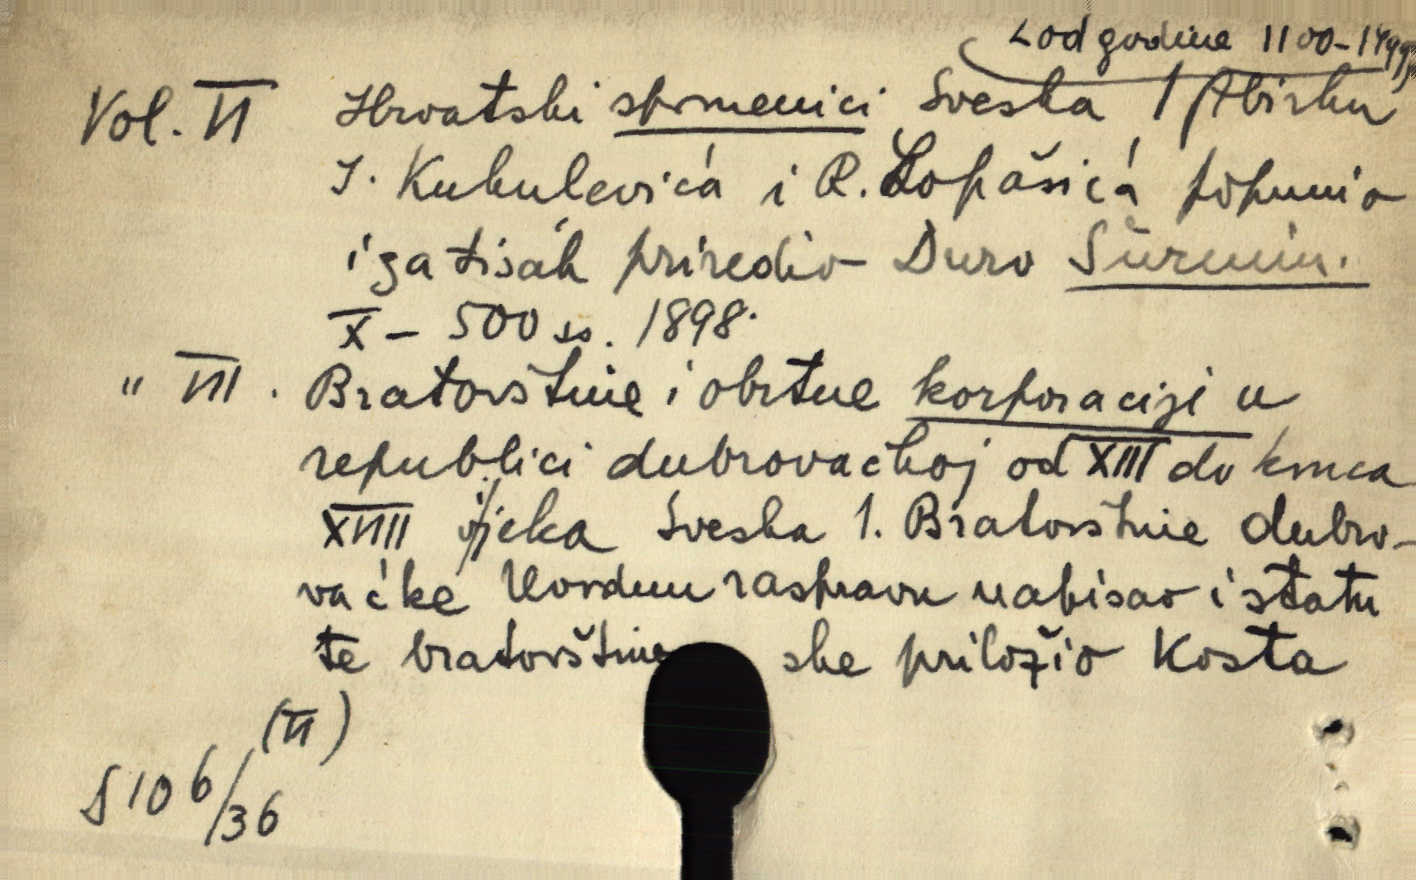 od godine 1100-1499
Vol. VI Hrvatski spomenici Sveska I /Zbirku
I. Kukulevića i R. Lopašića popunio
i za tisak priredio Đuro Šurmin.
X – 500 ss. 1898.
" VII. Bratovštine i obrtne korporaciji u
republici dubrovačkoj od XIII do konca
XVIII vjeka Sveska 1. Bratovštine dubro-
vačke Uvodnu raspravu napisao i statu
te bratovštine ske priložio Kosta
(VI)
S 106/36